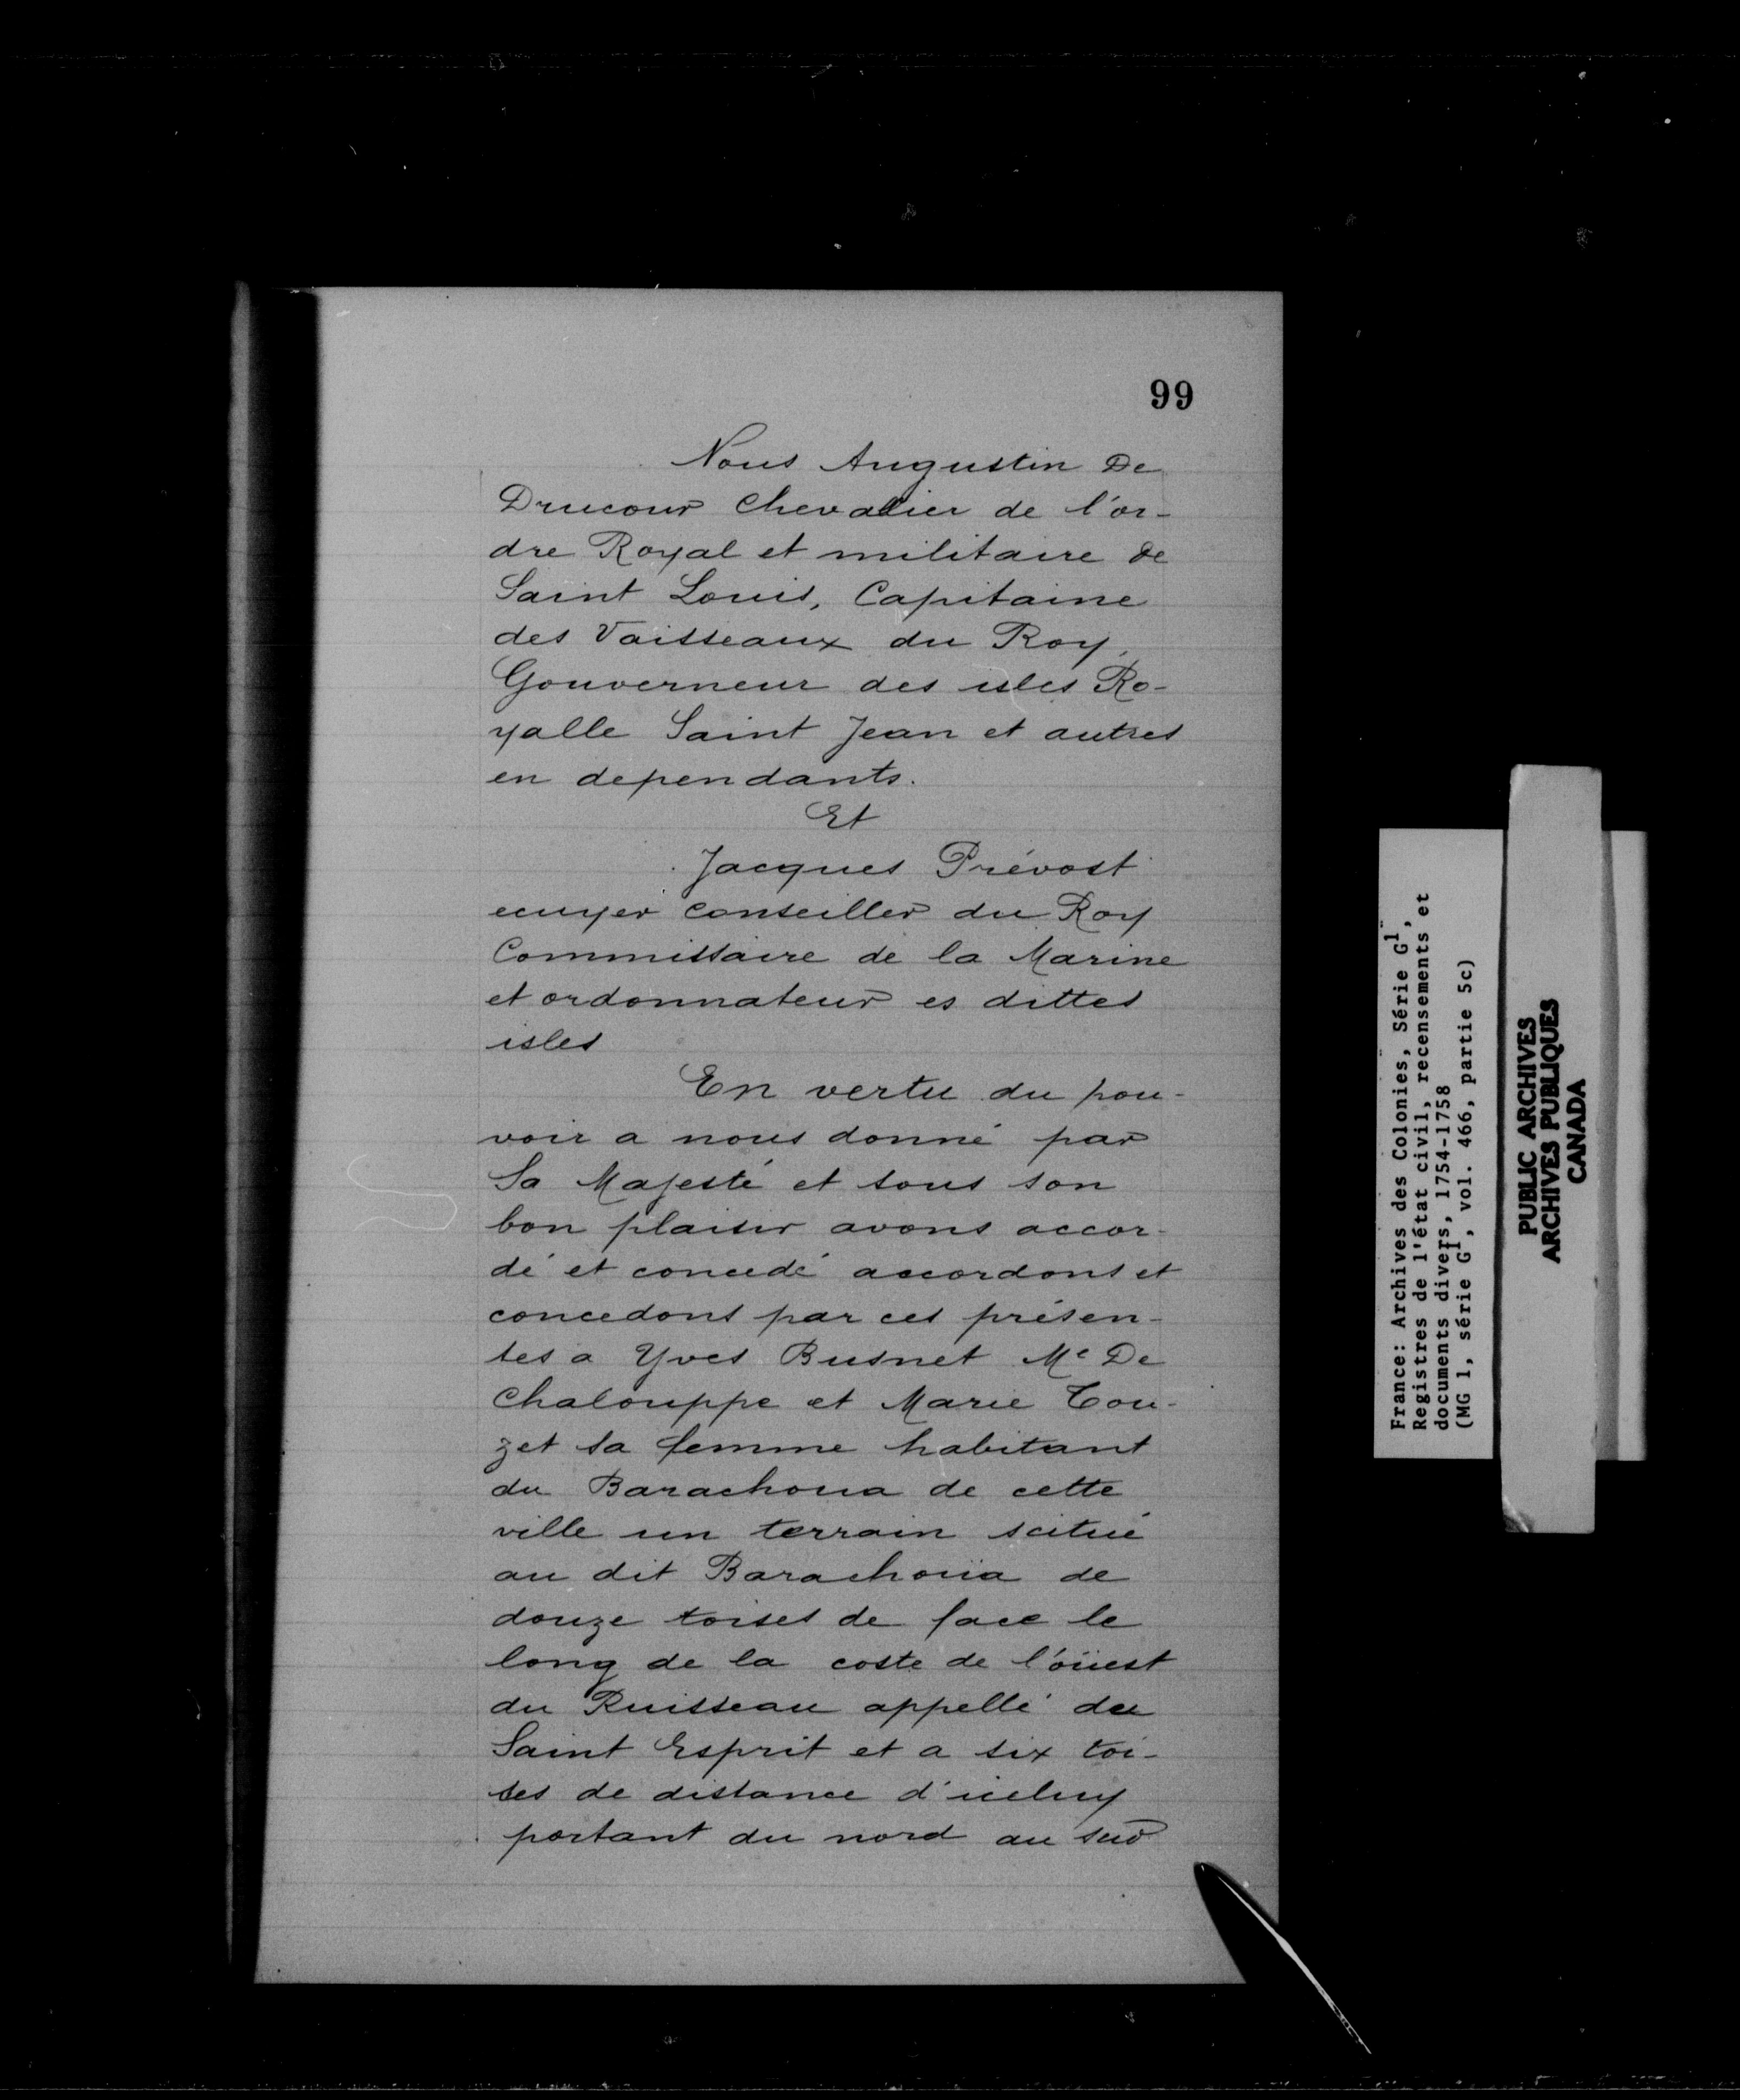 99
Nous Augustin De
Drucour Chevalier de l'or-
dre Royal et militaire de
Saint Louis, Capitaine
des Vaisseaux du Roy,
Gouverneur des isles Ro-
yalle Saint Jean et autres
en dependants.
Et
Jacques Prévost
ecuyer conseiller du Roy
Commissaire de la Marine
et ordonnateur es dittes
isles
En vertu du pou-
voir a nous donné par
Sa Majesté et sous son
bon plaisir avons accor-
dé et concedé accordons et
concedons par ces présen-
tes a Yves Busnet Me De
Chalouppe et Marie Cou-
zet sa femme habitant
du Barachoua de cette
ville un terrain scitué
au dit Barachoüa de
douze toises de face le
long de la coste de l'oüest
du Ruisseau appellé du
Saint Esprit et a six toi-
ses de distance d'iceluy
portant du nord au sud
France: Archives des Colonies, Série G1,
Registres de l'état civil, recensements et
documents divers, 1754-1758
(MG 1, série G1, vol. 466, partie 5c)
PUBLIC ARCHIVES
ARCHIVES PUBLIQUES
CANADA